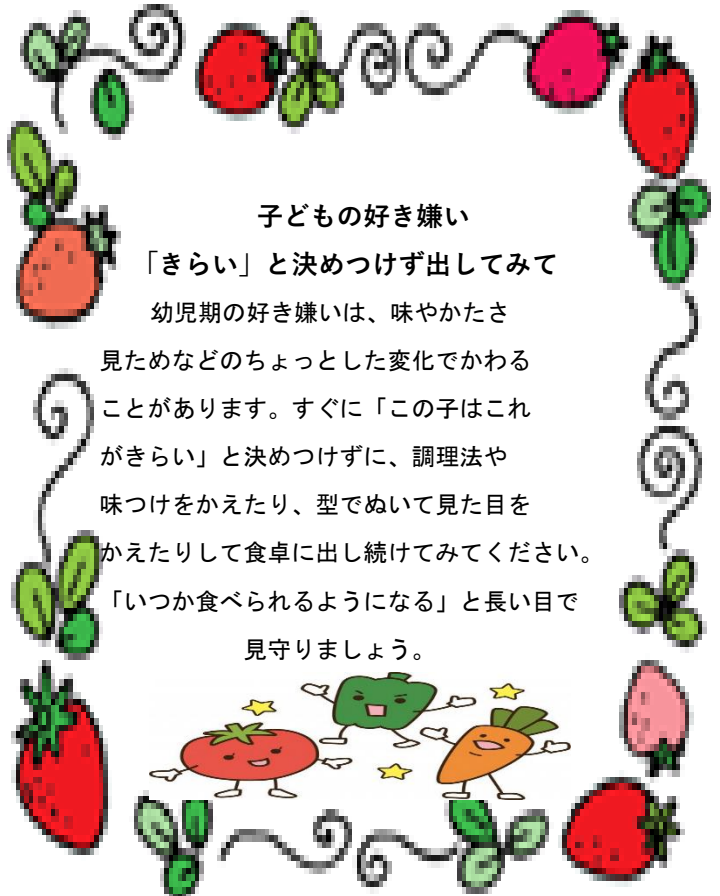 子どもの好き嫌い
「きらい」と決めつけず出してみて
幼児期の好き嫌いは、味やかたさ
見ためなどのちょっとした変化でかわる
ことがあります。すぐに「この子はこれ
がきらい」と決めつけずに、調理法や
味つけをかえたり、型でぬいて見た目を
かえたりして食卓に出し続けてみてください。
「いつか食べられるようになる」と長い目で
見守りましょう。